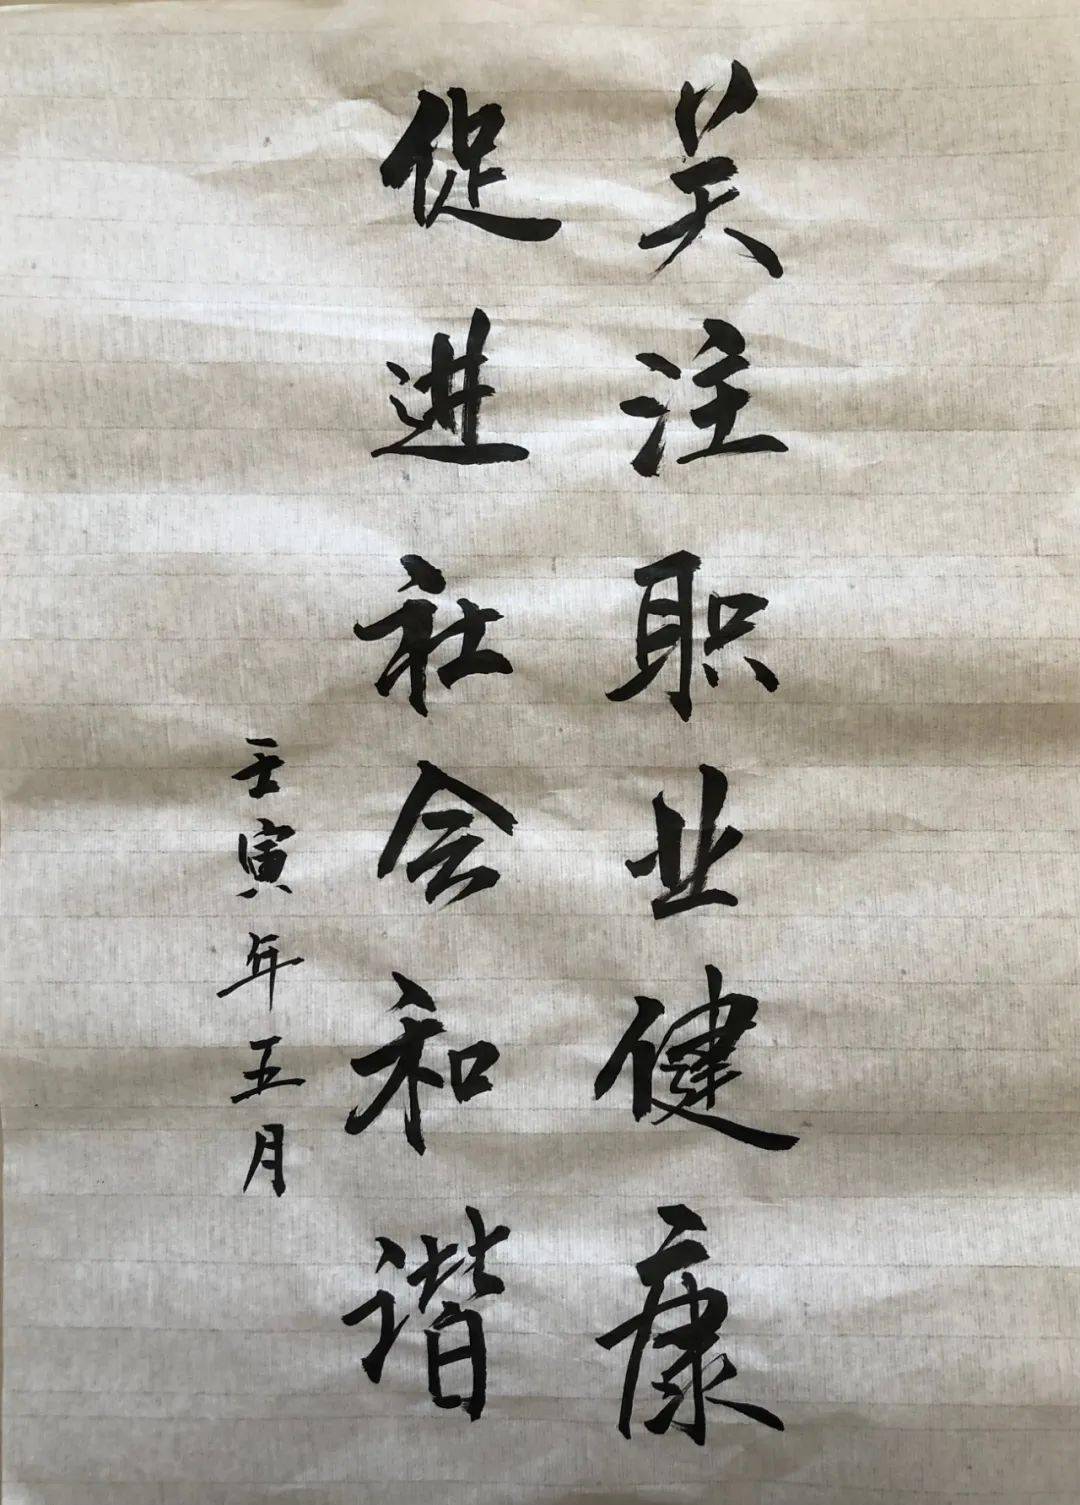 关注职业健康
促进社会和谐
壬寅年五月